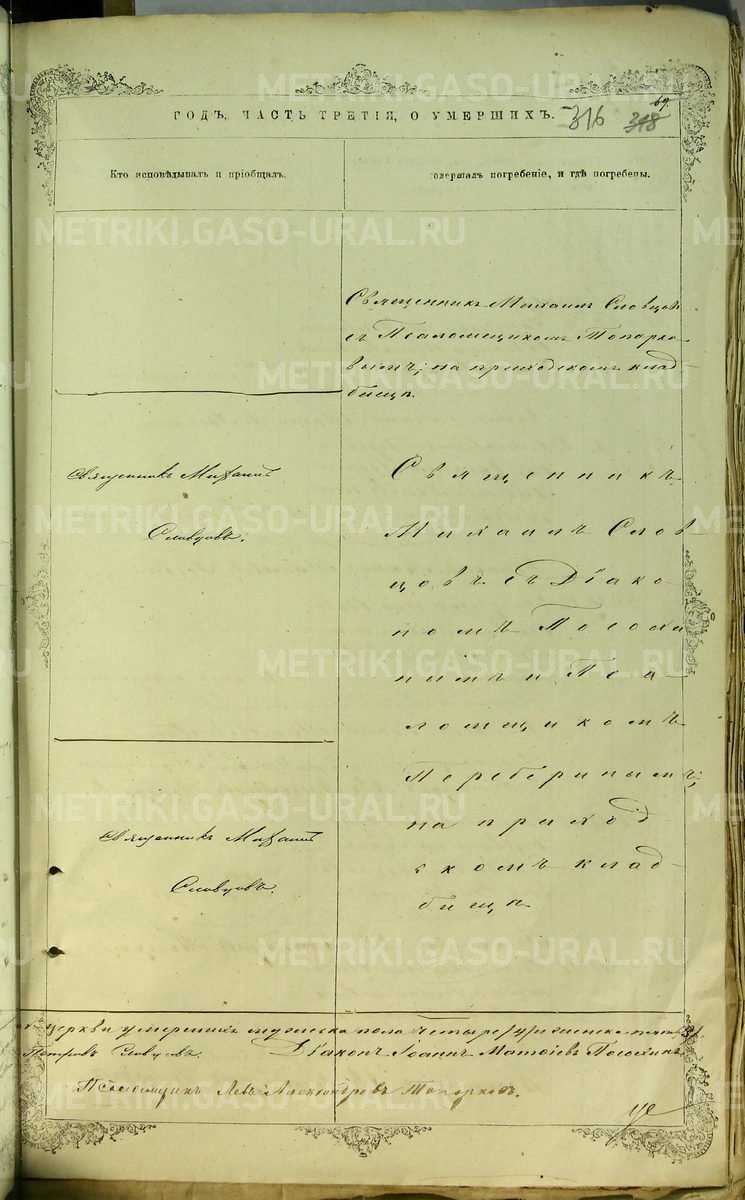 69.
ГОДЪ, ЧАСТЬ ТРЕТІЯ, О УМЕРШИХЪ. 316 318
Кто исповѣдывалъ и пріобщалъ.
совершалъ погребеніе, и гдѣ погребены.
Священникъ Михаилъ Словцовъ
съ Псаломщикомъ Топорко
вымъ; на приходскомъ клад-
бищѣ.
Священникъ Михаилъ
Словцовъ.
Священникъ
Михаилъ Слов
цовъ съ Діако
номъ Посохи
нымъ и Пса
ломщикомъ
Переберинымъ;
на приход
скомъ клад-
бищѣ
Священникъ Михаилъ
Словцовъ.
церкви умершихъ мужеска пола четыре /4/ и женска
Петровъ Словцовъ. Діаконъ Іоаннъ Матѳіевъ Посохинъ
Псаломщикъ Левъ Александровъ Топорковъ.
METRIKI.GASO-URAL.RU